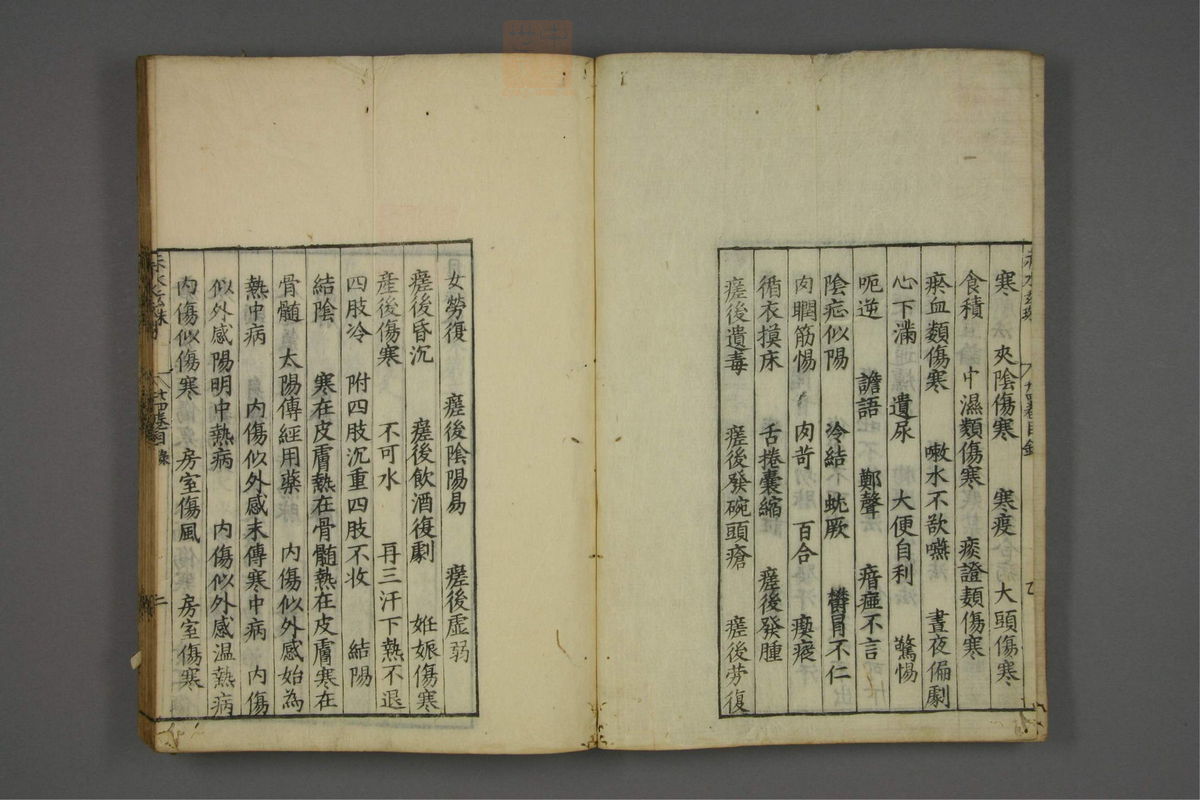 寒　夾陰傷寒　寒疫　大頭傷寒
食積　中濕類傷寒　痰證類傷寒
瘀血類傷寒　嗽水不欲嚥　晝夜偏劇
心下滿　遺尿　大便自利　驚惕
呃逆　譫語　鄭聲　瘖瘂不言
陰症似陽　冷結　蚘厥　欝冒不仁
肉瞤筋惕　肉苛　百合　瘈瘲
循衣摸床　舌捲囊縮　瘥後發腫
瘥後遺毒　瘥後發碗頭瘡　瘥後劳復
女勞復　瘥後陰陽易　瘥後虚弱
瘥後昏沉　瘥後飲酒復劇　妊娠傷寒
産後傷寒　不可水　再三汗下熱不退
四肢冷　附四肢沉重四肢不收　結陽
結陰　寒在皮膚熱在骨髓熱在皮膚寒在
骨髓　太陽傳經用藥　内傷似外感始為
熱中病　内傷似外感末傳寒中病　内傷
似外感陽明中熱病　内傷似外感温熱病
内傷似傷寒　房室傷風　房室傷寒
赤水玄珠　廿四卷目錄　二